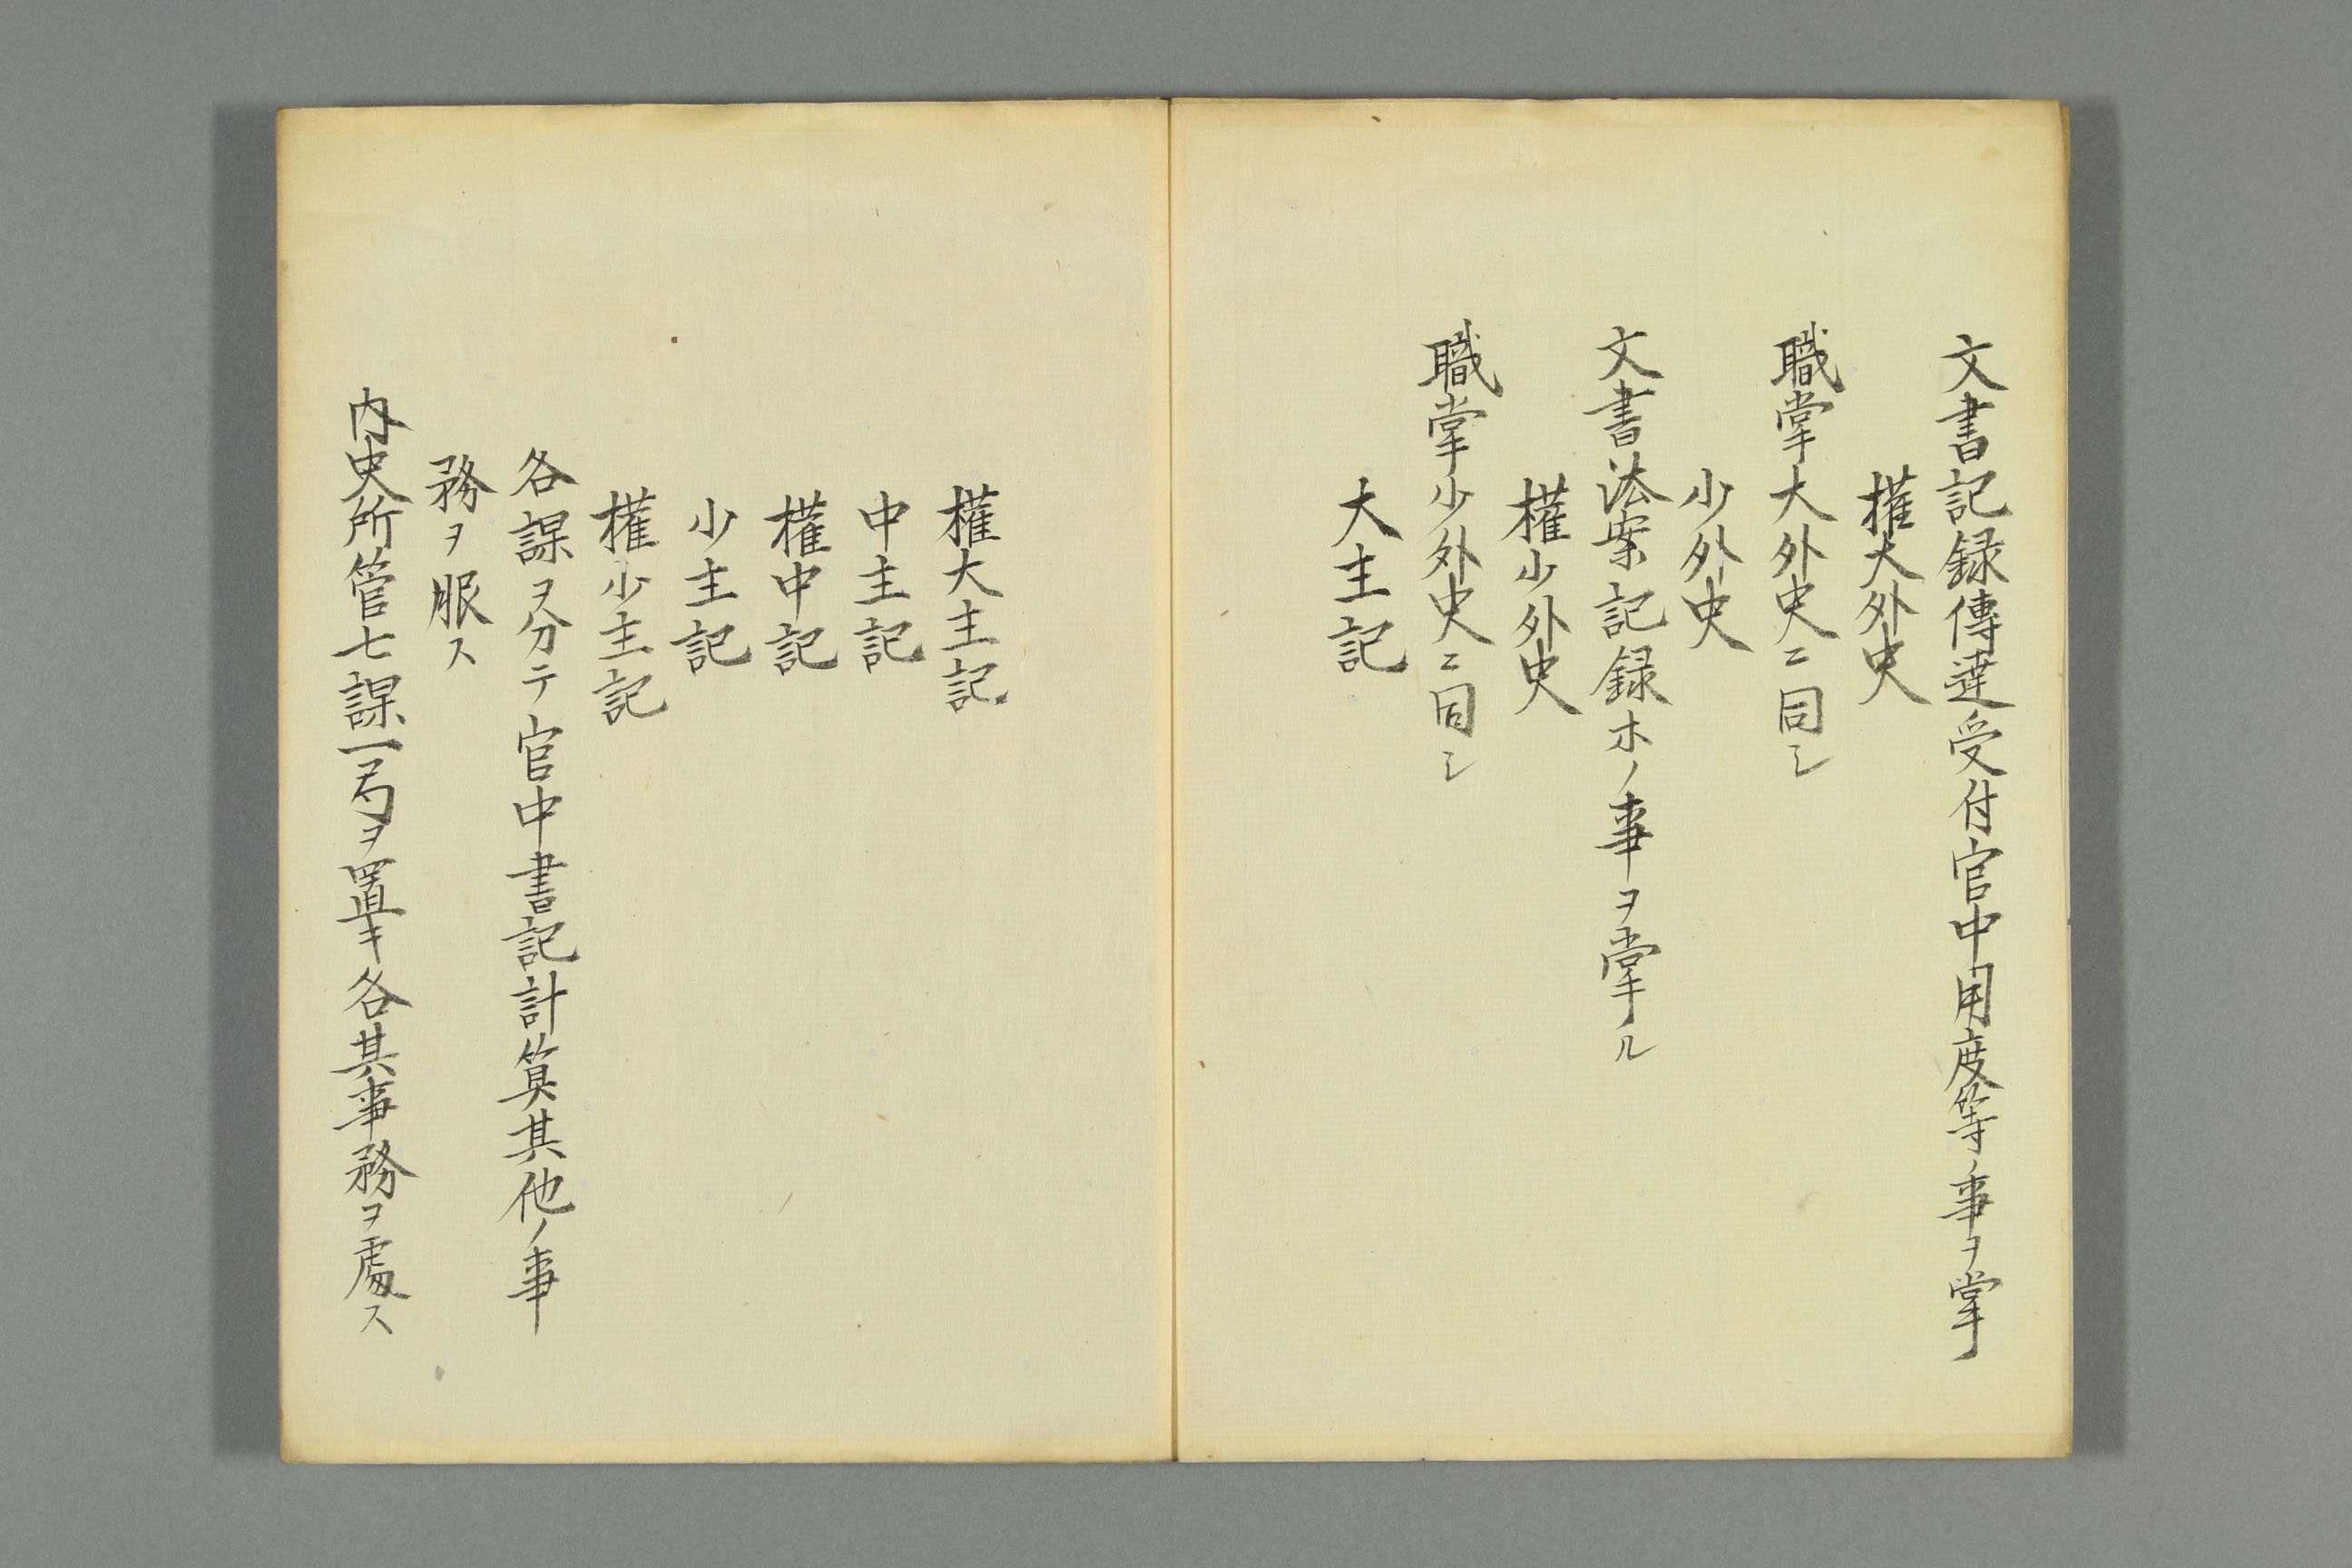 文書記録傳達受付官中用度等ノ事ヲ掌
權大外史
職掌大外史ニ同シ
少外史
文書法案記録ホノ事ヲ掌ル
權少外史
職掌少外史ニ同シ
大主記
權大主記
中主記
權中記
少主記
權少主記
各課ヲ分テ官中書記計算其他ノ事
務ヲ服ス
内史所管七課一局ヲ置キ各其事務ヲ處ス